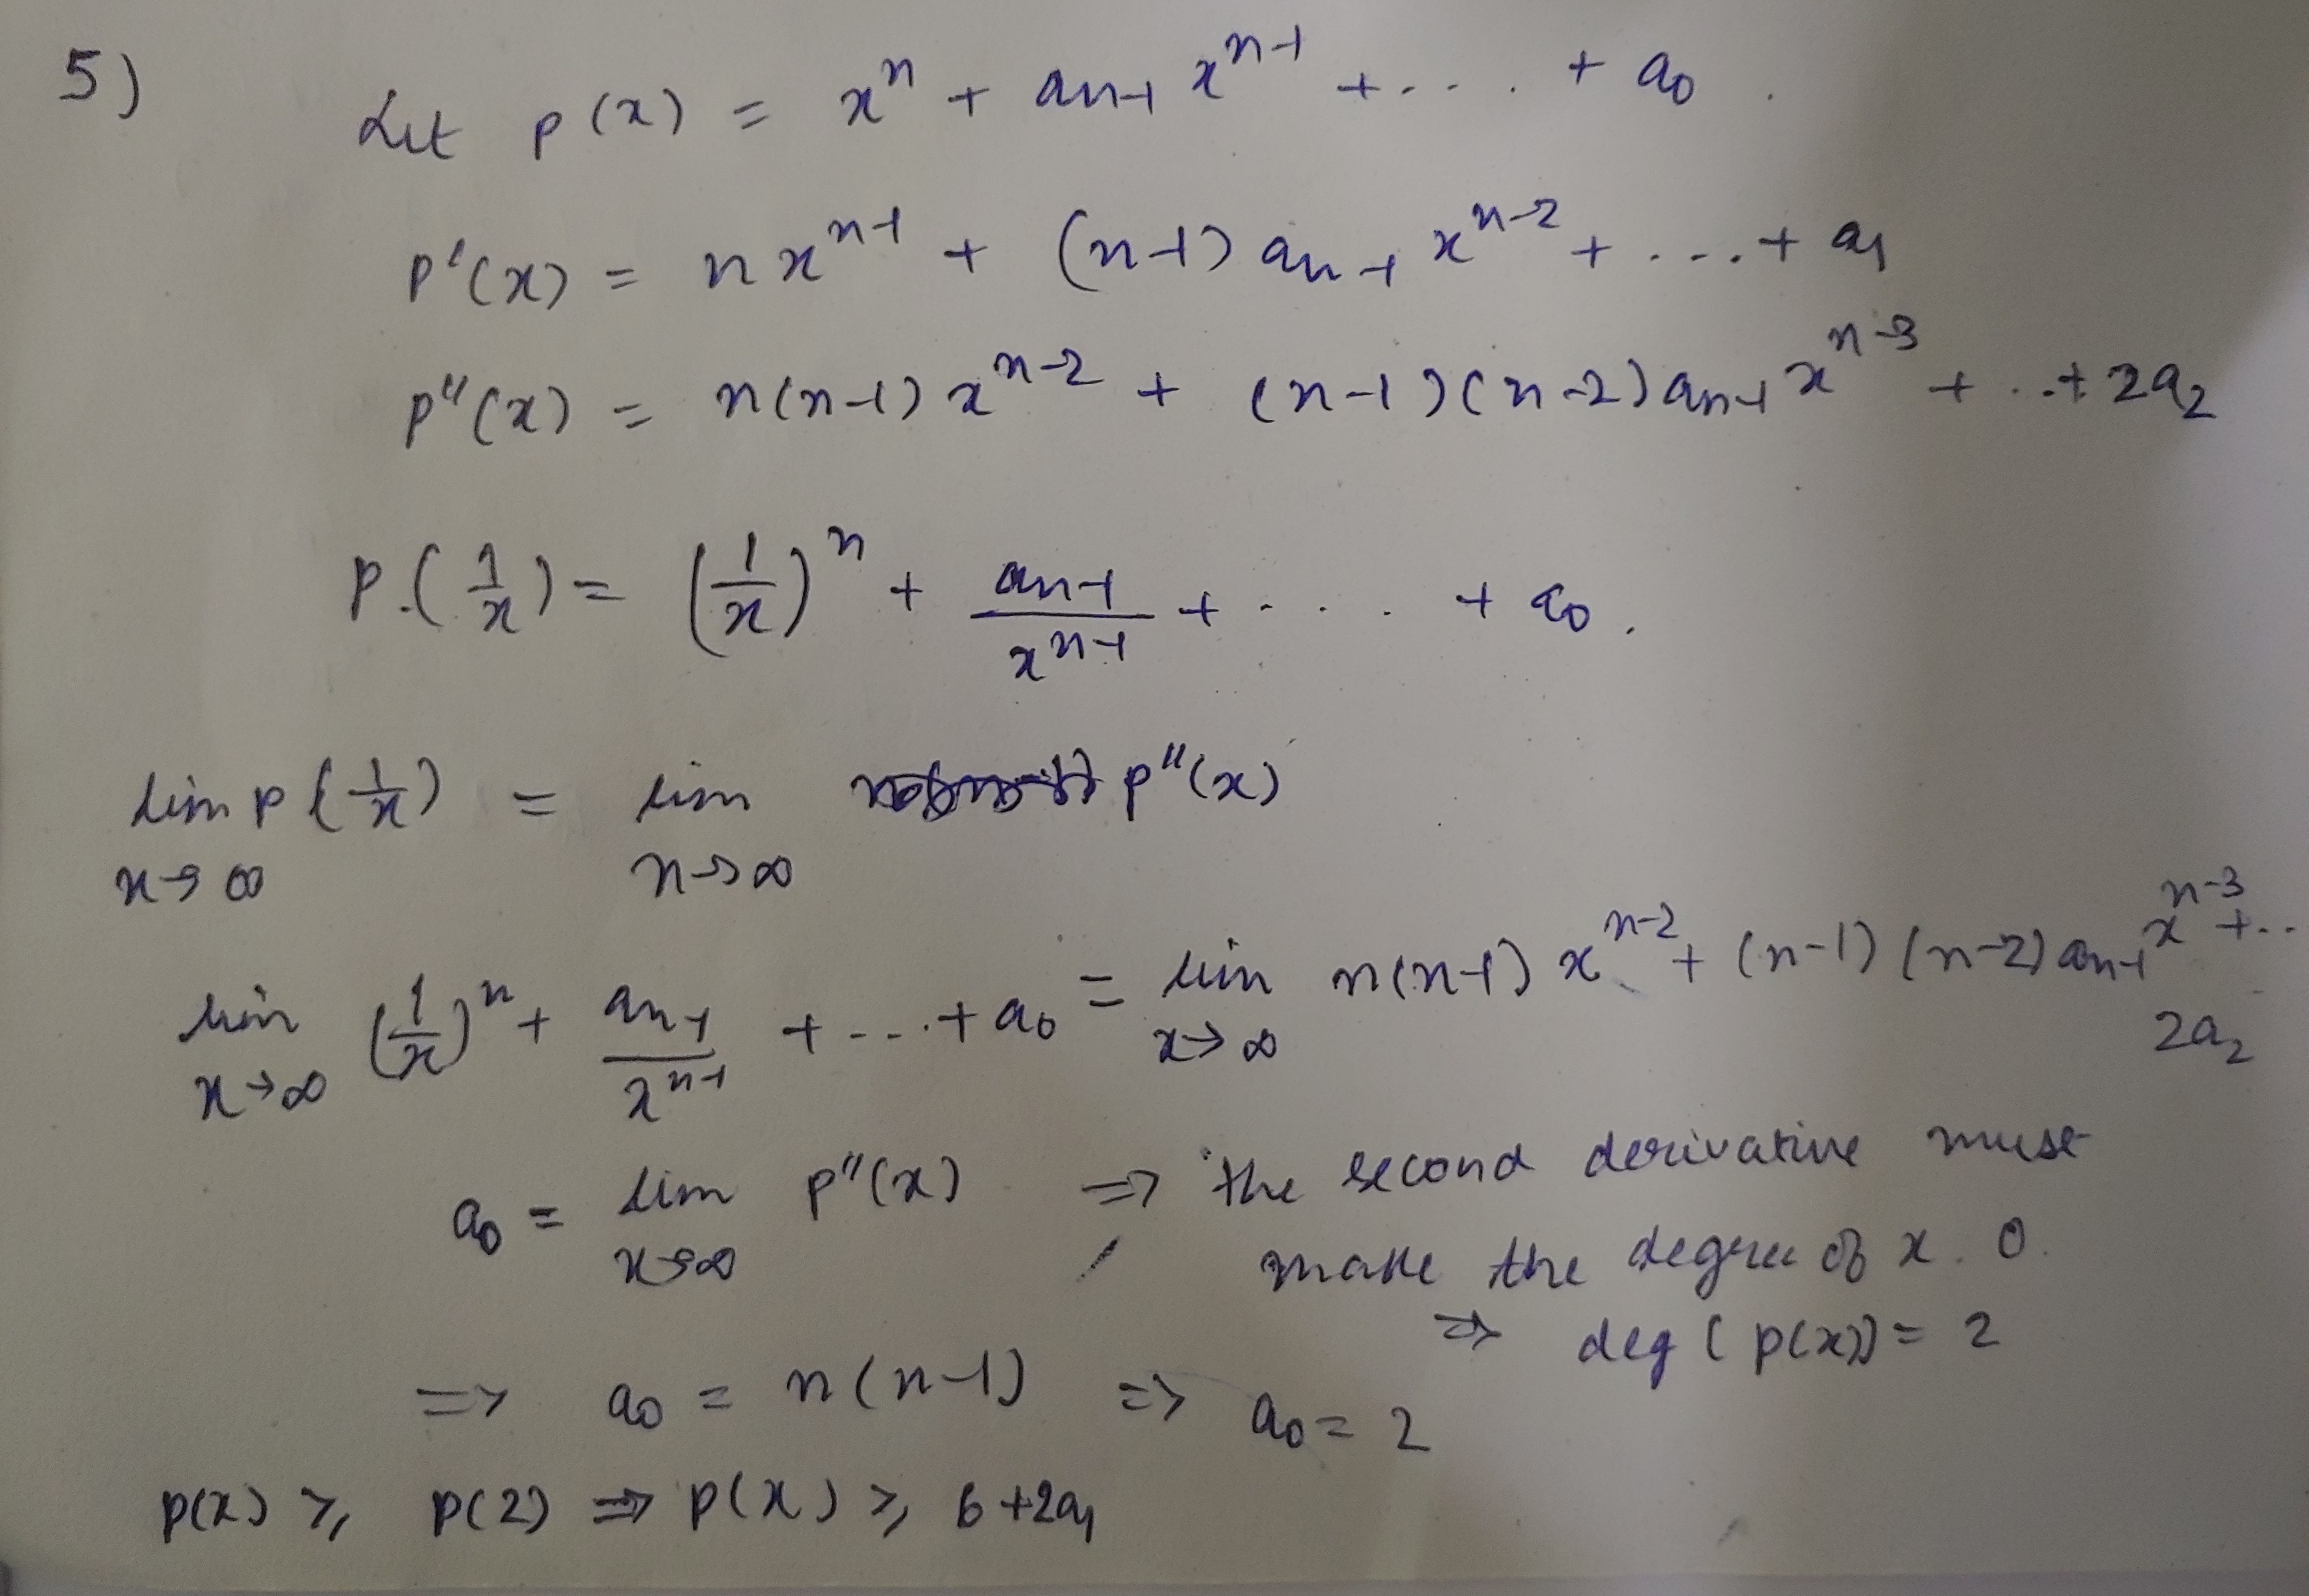 5) Let p(x) = xⁿ + aₙ₋₁ xⁿ⁻¹ + .... + a₀.
p'(x) = n xⁿ⁻¹ + (n-1) aₙ₋₁ xⁿ⁻² + .... + a₁
p"(x) = n(n-1) xⁿ⁻² + (n-1)(n-2) aₙ₋₁ xⁿ⁻³ + ..+ 2a₂
P.(1/x) = (1/x)ⁿ + aₙ₋₁/xⁿ⁻¹ + .... + a₀.
lim p(1/x) = lim p"(x)
x→∞ x→∞
lim (1/x)ⁿ + aₙ₋₁/xⁿ⁻¹ + ....+ a₀ = lim n(n-1) xⁿ⁻² + (n-1)(n-2) aₙ₋₁ xⁿ⁻³ + ..
x→∞ x→∞ 2a₂
a₀ = lim p"(x) ⇒ the second derivative must
x→∞ make the degree of x. 0.
⇒ deg (p(x)) = 2
⇒ a₀ = n(n-1) ⇒ a₀ = 2
p(x) ≥ p(2) ⇒ p(x) ≥ 6 + 2a₁